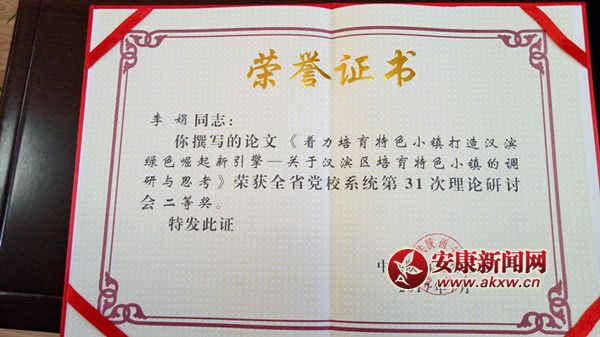 荣誉证书
李娟同志：
你撰写的论文《着力培育特色小镇打造汉滨
绿色崛起新引擎—关于汉滨区培育特色小镇的调
研与思考》荣获全省党校系统第31次理论研讨
会二等奖。
特发此证
中
安康新闻网
www.akxw.cn